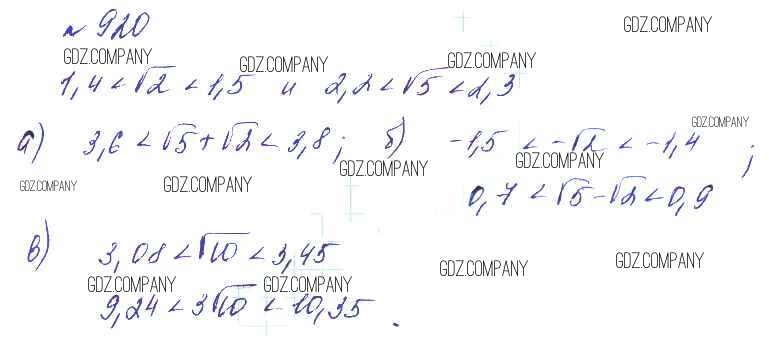 № 920
GDZ.COMPANY
GDZ.COMPANY GDZ.COMPANY GDZ.COMPANY
1,4 < √2 < 1,5 и 2,2 < √5 < 2,3
GDZ.COMPANY
а) 3,6 < √5 + √2 < 3,8; б) -1,5 < -√2 < -1,4 ;
GDZ.COMPANY GDZ.COMPANY
GDZ.COMPANY GDZ.COMPANY
0,7 < √5 - √2 < 0,9
в) 3,08 < √10 < 3,45
GDZ.COMPANY GDZ.COMPANY
GDZ.COMPANY GDZ.COMPANY
9,24 < 3√10 < 10,35.